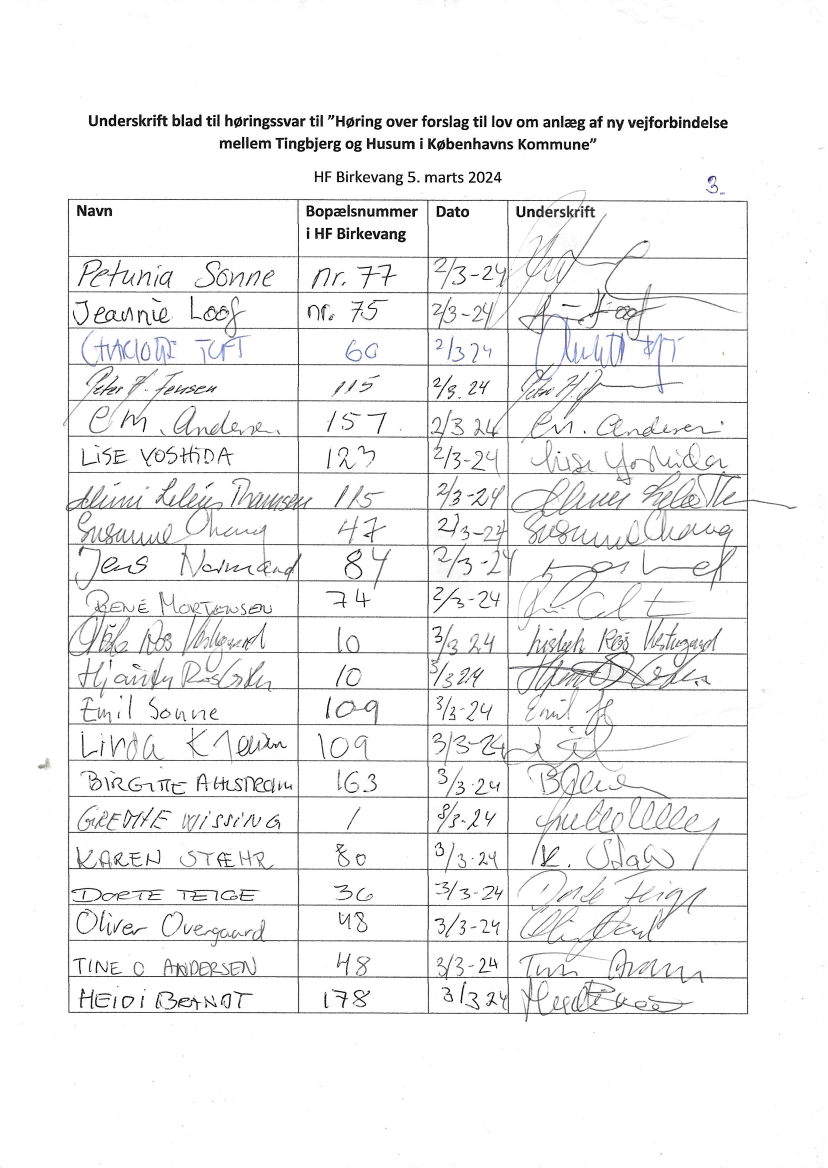 Underskrift blad til høringssvar til ”Høring over forslag til lov om anlæg af ny vejforbindelse
mellem Tingbjerg og Husum i Københavns Kommune”
HF Birkevang 5. marts 2024
3.
Navn Bopælsnummer i HF Birkevang Dato Underskrift
Petunia Sonne nr. 77 2/3-24
Jeannie Loof nr. 75 2/3-24 Loof
60 2/3 24
Peter H. Jensen 115 2/3.24 Peter H. J
C M. Andersen 157 2/3 24 C M. Andersen
LISE YOSHIDA 123 2/3-24 Lise Yoshida
Thomsen 115 2/3-24
Susanne Chang 47 2/3-24 Susanne Chang
Jens Normand 84 2/3-24
RENÉ MORTENSEN 74 2/3-24
Vestergaard 10 3/3 24 Lisbeth Ros Vestergaard
10 3/3 24
Emil Sonne 109 3/3-24 Emil
Linda 109 3/3-24
BIRGITTE AHLSTRØM 163 3/3-24
GRETHE WISSING 1 3/3-24
KAREN STÆHR 80 3/3-24 K. Stæhr
DORTE TEIGE 36 3/3-24 Dorte Teige
Oliver Overgaard 48 3/3-24
TINE O ANDERSEN 48 3/3-24
HEIDI BRANDT 178 3/3 24